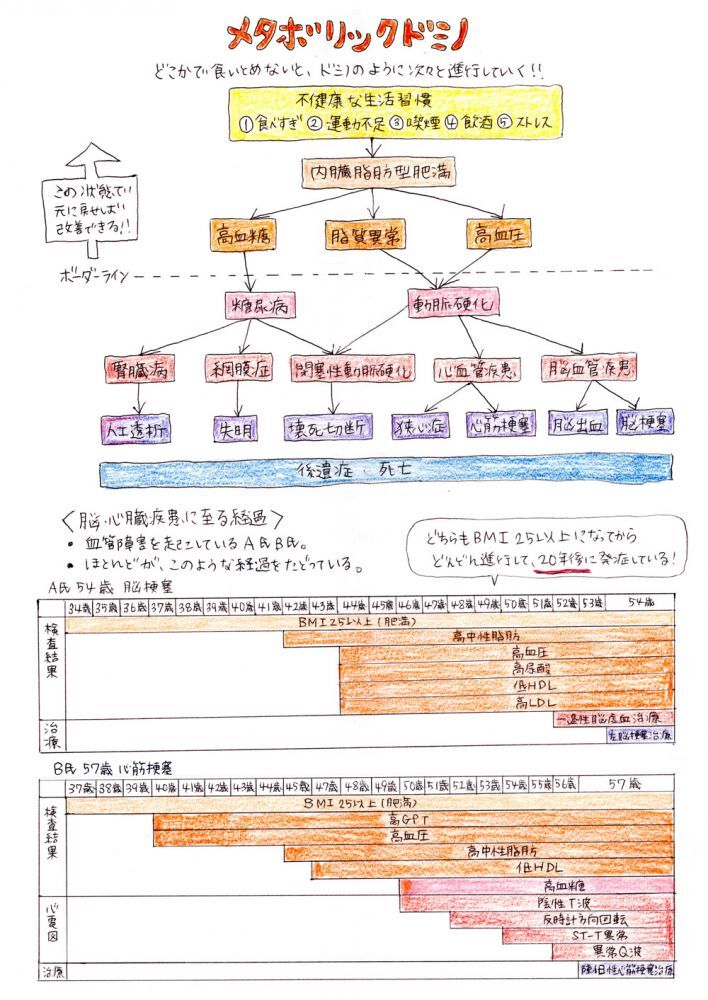 メタボリックドミノ
どこかで食いとめないと、ドミノのように次々と進行していく!!
不健康な生活習慣
①食べすぎ ②運動不足 ③喫煙 ④飲酒 ⑤ストレス
内臓脂肪型肥満
この状態で
元に戻せば
改善できる!!
高血糖 脂質異常 高血圧
ボーダーライン
糖尿病 動脈硬化
腎臓病 網膜症 閉塞性動脈硬化 心血管疾患 脳血管疾患
人工透析 失明 壊死切断 狭心症 心筋梗塞 脳出血 脳梗塞
後遺症・死亡
〈脳・心臓疾患に至る経過〉
・血管障害を起こしているA氏B氏。
・ほとんどが、このような経過をたどっている。
どちらもBMI25以上になってから
どんどん進行して、20年後に発症している!
A氏 54歳 脳梗塞
34歳 35歳 36歳 37歳 38歳 39歳 40歳 41歳 42歳 43歳 44歳 45歳 46歳 47歳 48歳 49歳 50歳 51歳 52歳 53歳 54歳
検査結果
BMI25以上(肥満)
高中性脂肪
高血圧
高尿酸
低HDL
高LDL
治療
一過性脳虚血治療
左脳梗塞治療
B氏 57歳 心筋梗塞
37歳 38歳 39歳 40歳 41歳 42歳 43歳 44歳 45歳 47歳 48歳 49歳 50歳 51歳 52歳 53歳 54歳 55歳 56歳 57歳
検査結果
BMI25以上(肥満)
高GPT
高血圧
高中性脂肪
低HDL
高血糖
心電図
陰性T波
反時計方向回転
ST-T異常
異常Q波
治療
陳旧性心筋梗塞治療